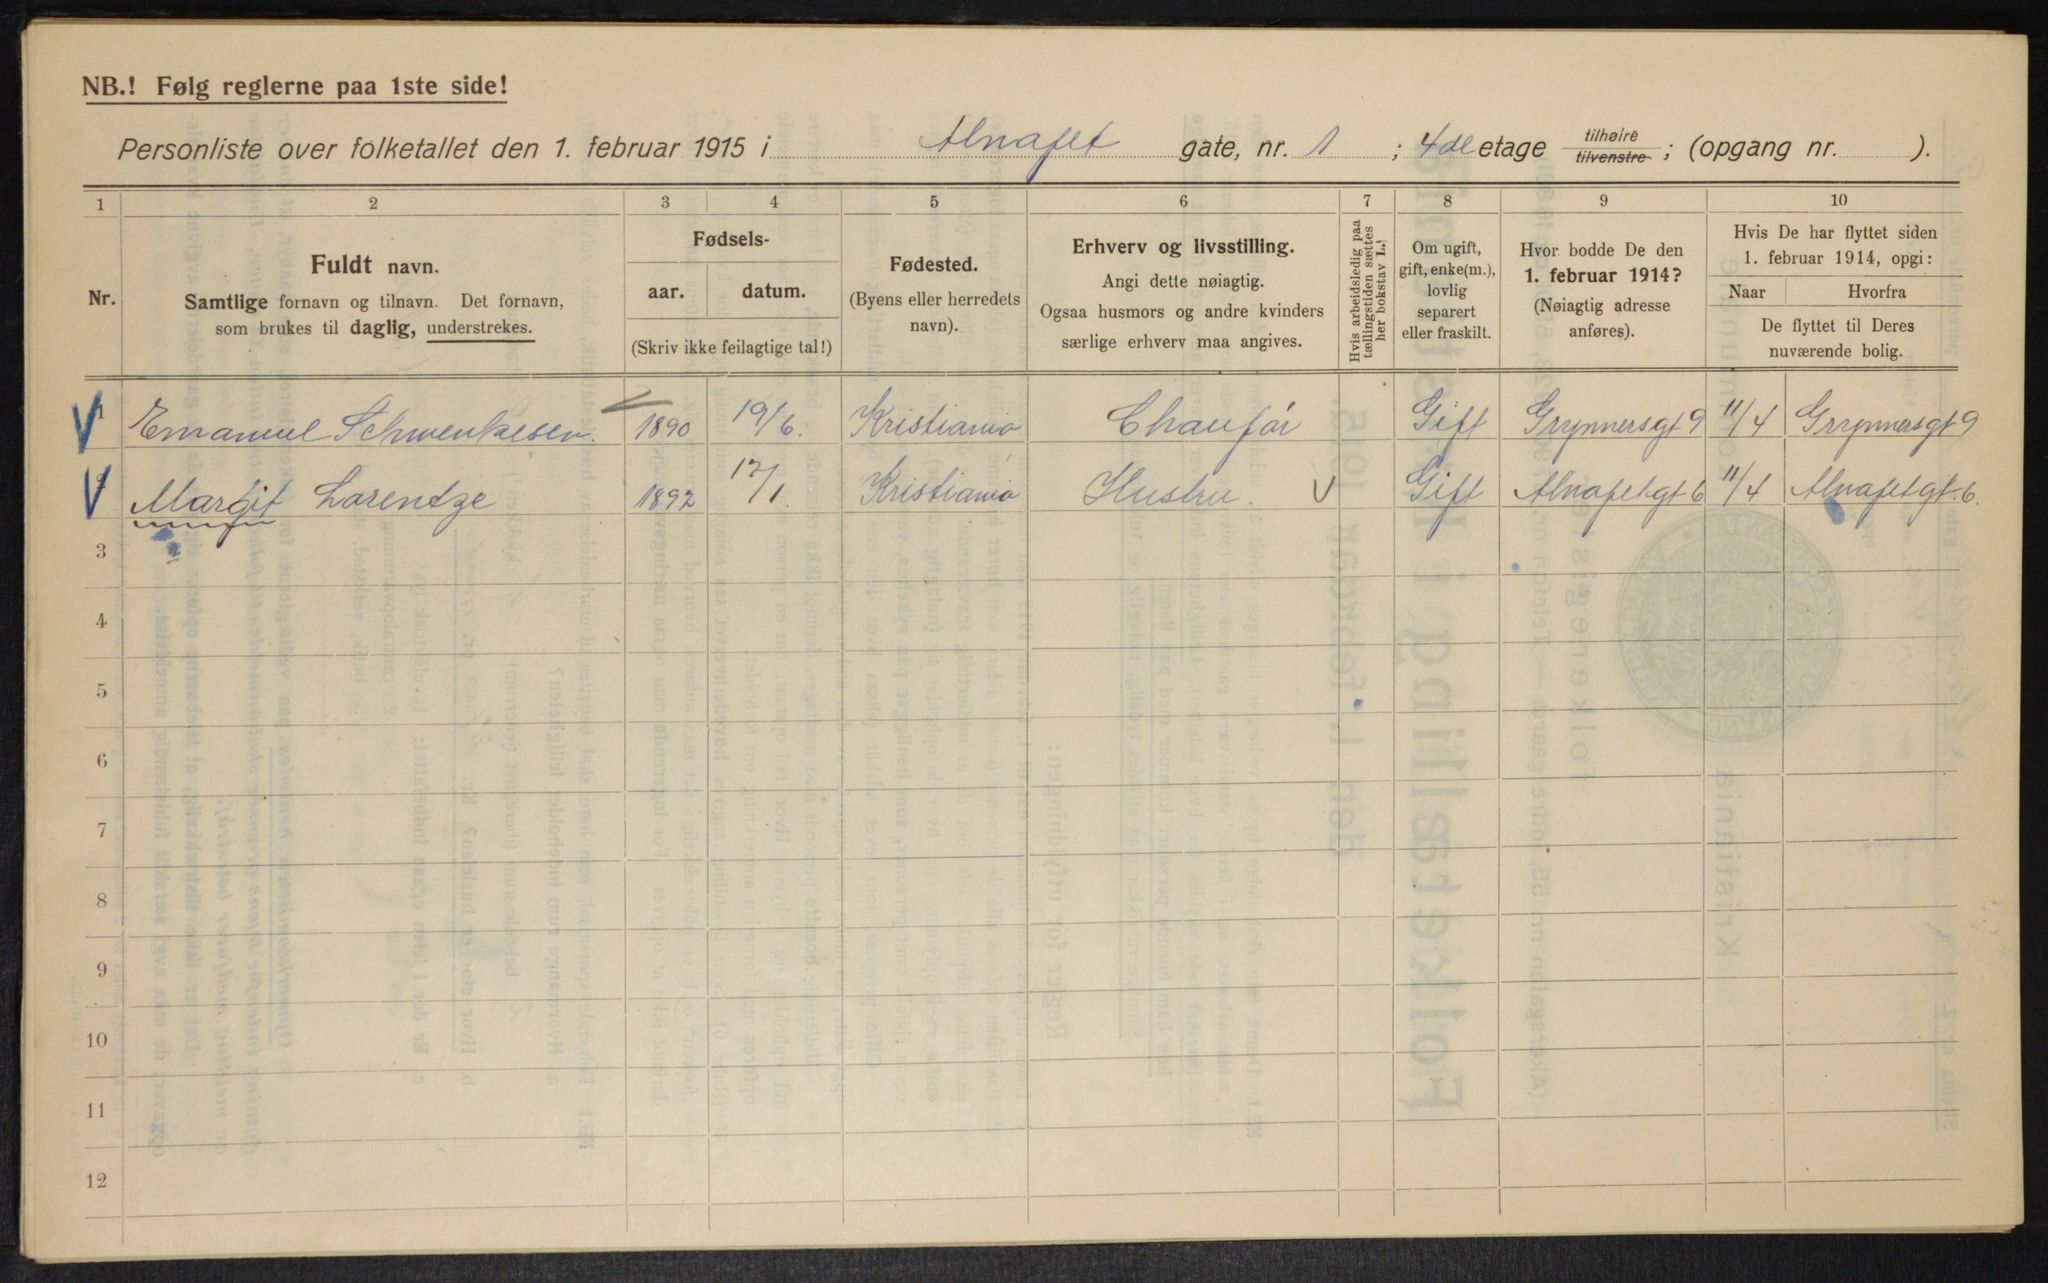 NB.! Følg reglerne paa 1ste side!
Personliste over folketallet den 1. februar 1915 i Alnafet gate, nr. 1 ; 4de etage tilhøire tilvenstre ; (opgang nr. ).
1 2 3 4 5 6 7 8 9 10
Nr.
Fuldt navn.
Samtlige fornavn og tilnavn. Det fornavn,
som brukes til daglig, understrekes.
Fødsels-
aar. datum.
(Skriv ikke feilagtige tal!)
Fødested.
(Byens eller herredets
navn).
Erhverv og livsstilling.
Angi dette nøiagtig.
Ogsaa husmors og andre kvinders
særlige erhverv maa angives.
Hvis arbeidsledig paa
tællingstiden sættes
her bokstav L.!
Om ugift,
gift, enke(m.),
lovlig
separert
eller fraskilt.
Hvor bodde De den
1. februar 1914?
(Nøiagtig adresse
anføres).
Hvis De har flyttet siden
1. februar 1914, opgi:
Naar Hvorfra
De flyttet til Deres
nuværende bolig.
1 Emanuel Schwenkesen. 1890 19/6. Kristiania Chaufør Gift Grynnersgt 9 11/4 Grynnersgt 9
2 Margit Lorentze 1892 17/1. Kristiania Hustru V Gift Alnafetgt 6 11/4 Alnafetgt. 6.
3
4
5
6
7
8
9
10
11
12